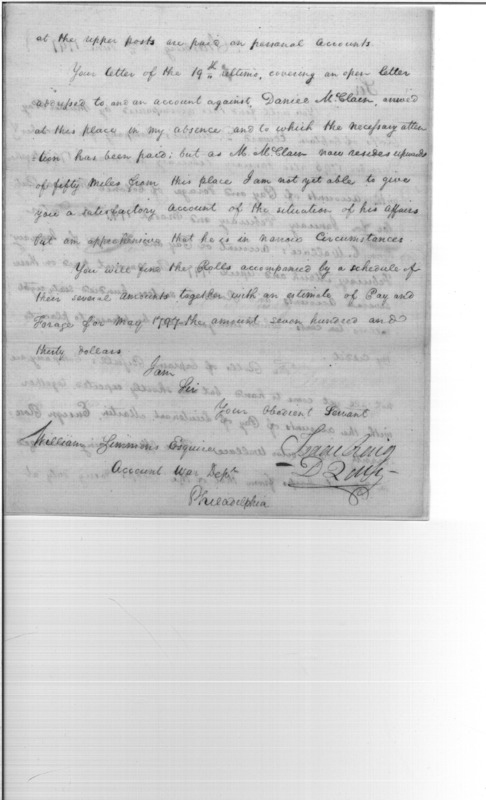 at the upper posts on paid on personal accounts.
Your letter of the 19th ultimo, covering an open letter
adressed to and an account against, Daniel McClain, arrived
at this place in my absence and to which the necessary atten
tion has been paid; but as Mr. McClain now resides upwards
of fifty miles from this place I am not yet able to give
you a satisfactory account of the situation of his affairs
but am apprehensive that he is in narrow Circumstances
You will find the Rolls accompanied by a schedule of
their several amounts together with an estimate of Pay and
Forage for May 1797 the amount seven hundred and
thirty dollars
I am
Sir
Your Obedient Servant
William Simmons Esquire
Isaac Craig
D Q M G
Account War Dept
Philadelphia